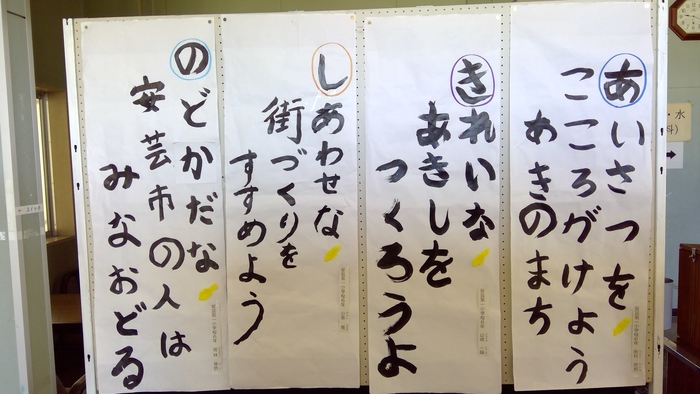 あいさつを
こころがけよう
あきのまち
きれいな
あきしを
つくろうよ
しあわせな
街づくりを
すすめよう
のどかだな
安芸市の人は
みなおどる